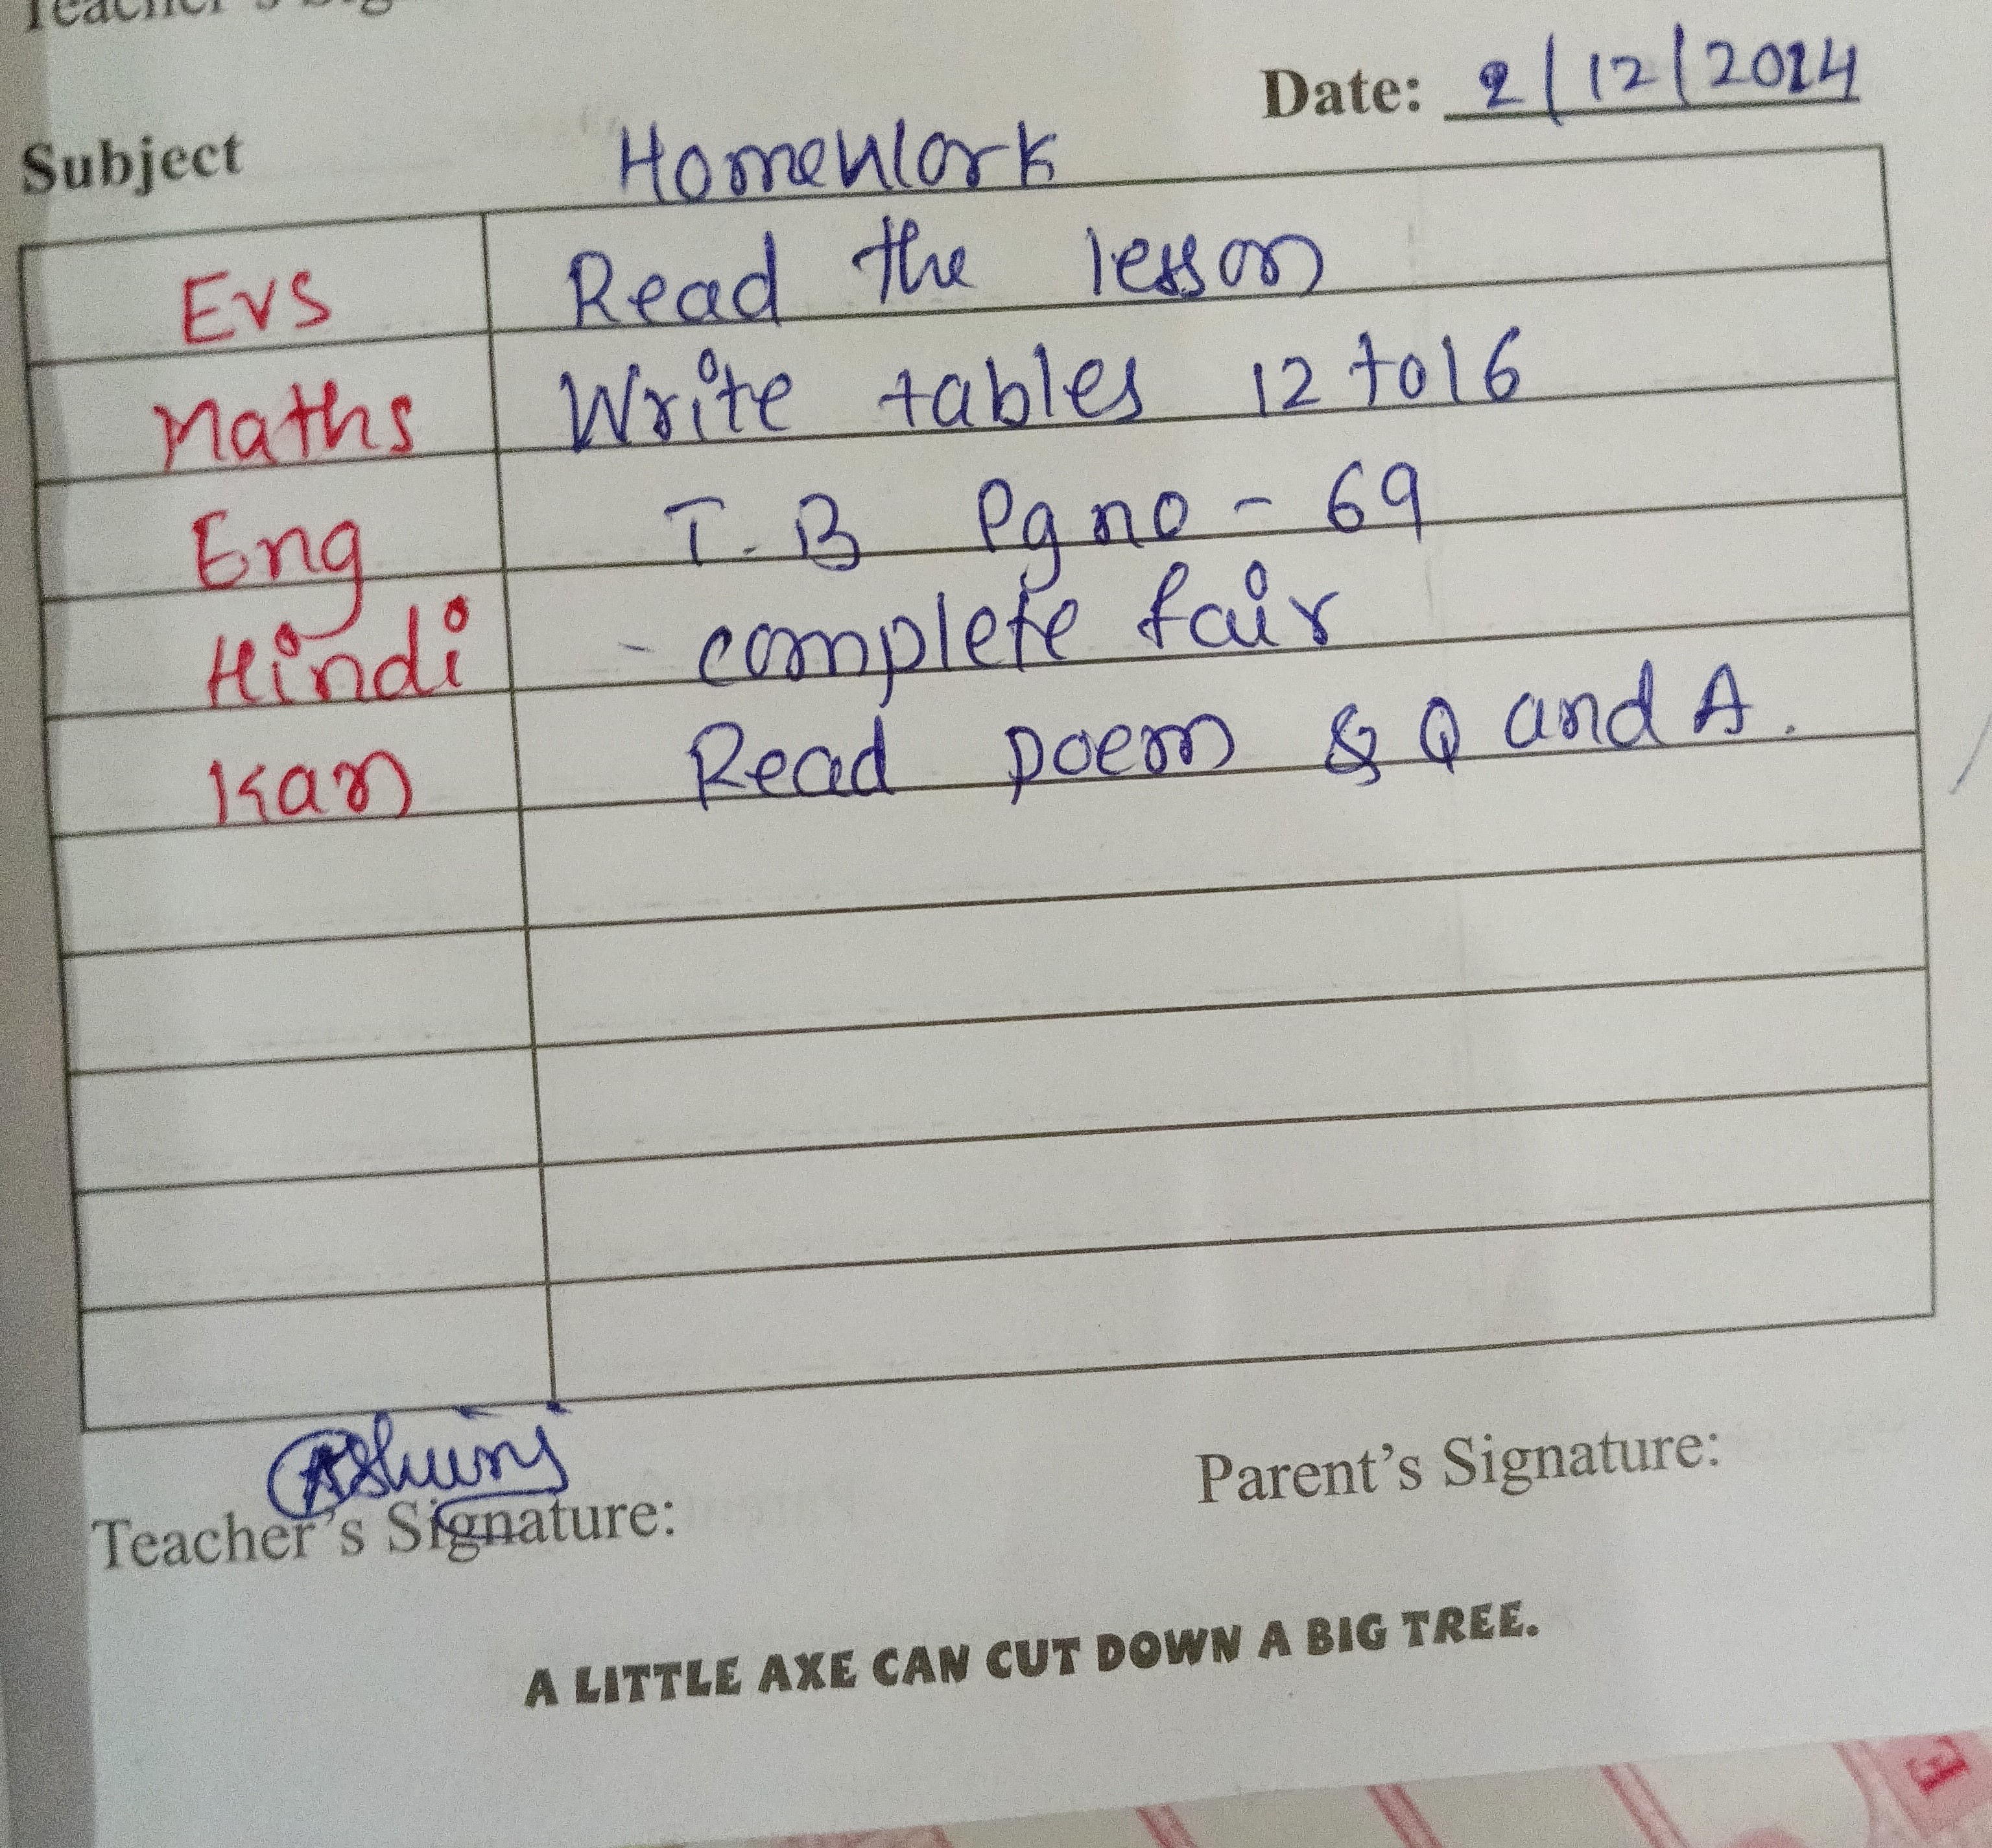 Date: 2/12/2024
Subject Homework
Evs Read the lesson
Maths Write tables 12 to 16
Eng T.B Pg no - 69
Hindi - complete fair
Kan Read poem & Q and A.
Ashwini
Teacher's Signature: Parent's Signature:
A LITTLE AXE CAN CUT DOWN A BIG TREE.